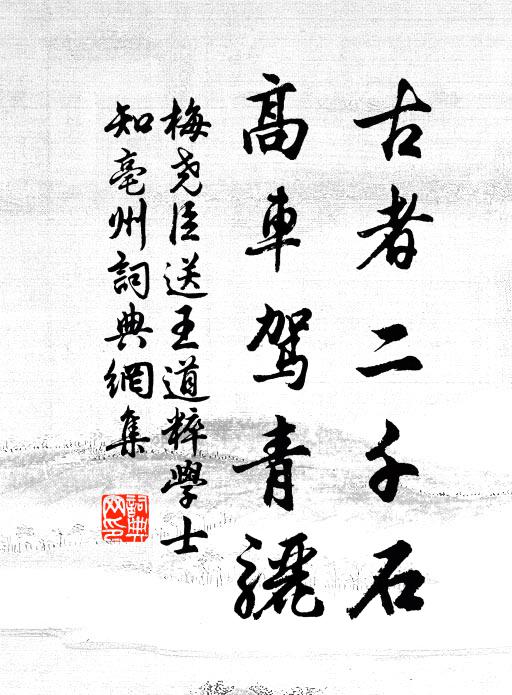 古者二千石
高車駕青驪
梅尧臣送王道粹學士
知亳州詞典網集
詞典
网印